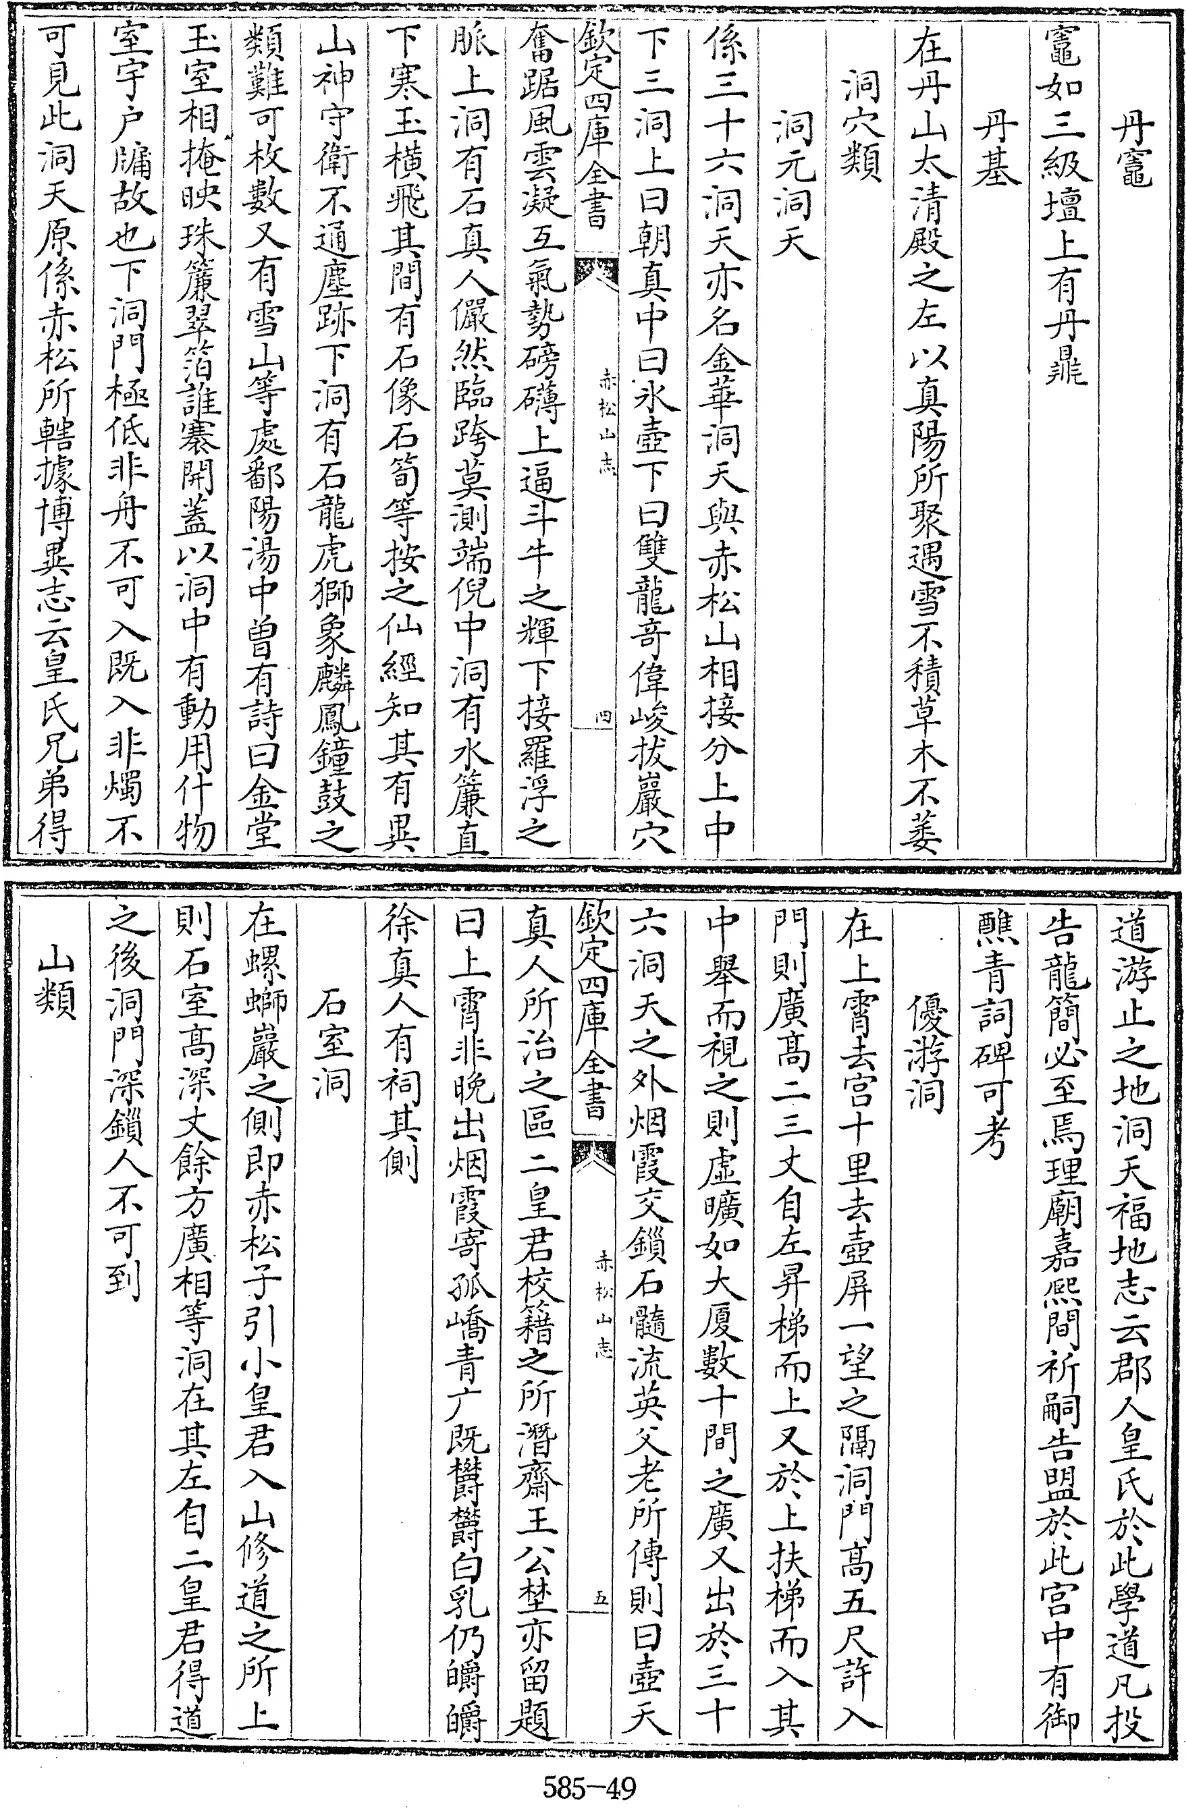 丹竈
竈如三級壇上有丹鼎
丹基
在丹山太清殿之左以真陽所聚遇雪不積草木不萎
洞穴類
洞元洞天
係三十六洞天亦名金華洞天與赤松山相接分上中
下三洞上曰朝真中曰氷壺下曰雙龍竒偉峻拔巖穴
欽定四庫全書
赤松山志
四
奮踞風雲凝互氣勢磅礴上逼斗牛之輝下接羅浮之
脈上洞有石真人儼然臨跨莫測端倪中洞有水簾直
下寒玉橫飛其間有石像石筍等按之仙經知其有異
山神守衛不通塵跡下洞有石龍虎獅象麟鳳鐘鼓之
類難可枚數又有雪山等處鄱陽湯中曽有詩曰金堂
玉室相掩映珠簾翠箔誰褰開蓋以洞中有動用什物
室宇户牗故也下洞門極低非舟不可入既入非燭不
可見此洞天原係赤松所轄據博異志云皇氏兄弟得
道游止之地洞天福地志云郡人皇氏於此學道凡投
告龍簡必至焉理廟嘉熙間祈嗣告盟於此宫中有御
醮青詞碑可考
優游洞
在上霄去宫十里去壺屏一望之隔洞門髙五尺許入
門則廣髙二三丈自左昇梯而上又於上扶梯而入其
中舉而視之則虛曠如大厦數十間之廣又出於三十
六洞天之外烟霞交鎻石髓流英父老所傳則曰壺天
欽定四庫全書
赤松山志
五
真人所治之區二皇君校籍之所潛齋王公埜亦留題
曰上霄非晚出烟霞寄孤嶠青广既欝欝白乳仍皭皭
徐真人有祠其側
石室洞
在螺螄巖之側即赤松子引小皇君入山修道之所上
則石室髙深丈餘方廣相等洞在其左自二皇君得道
之後洞門深鎻人不可到
山類
585-49